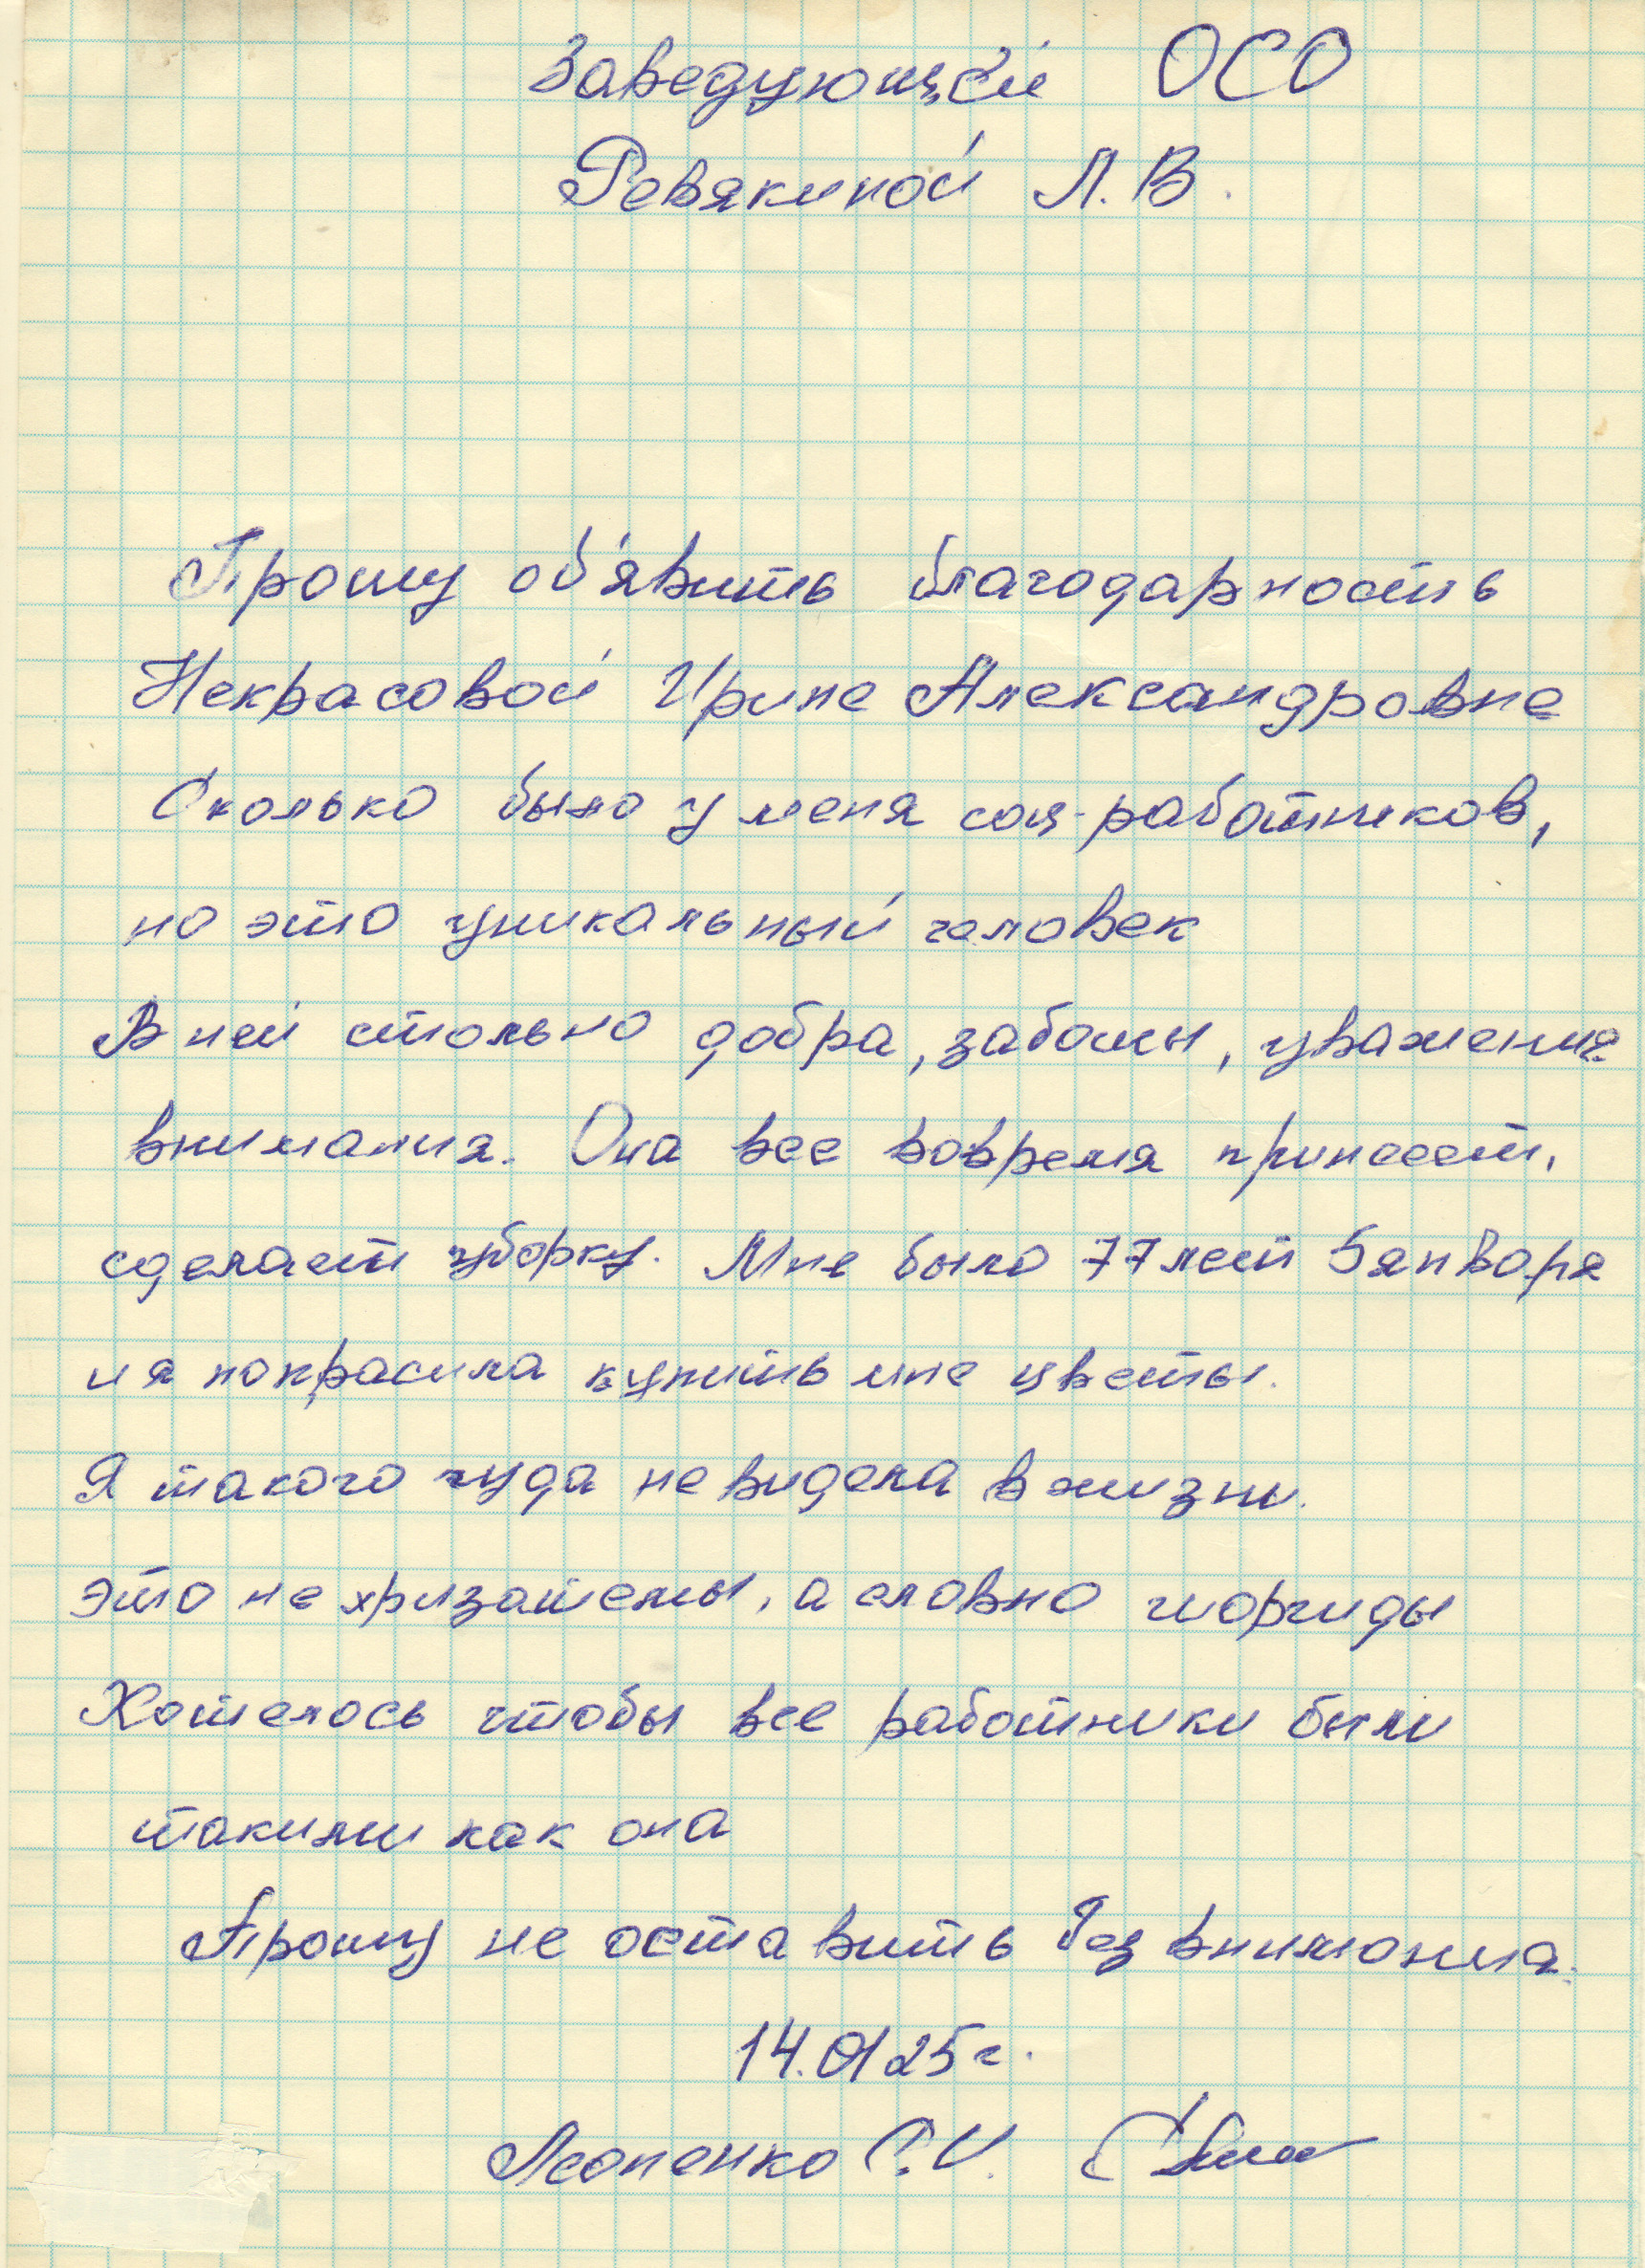 Заведующей ОСО
Ревякиной Л.В.
Прошу об'явить благодарность
Некрасовой Ирине Александровне
Сколько было у меня соц-работников,
но это уникальный человек
В ней столько добра, заботы, уважения
внимания. Она все вовремя принесет,
сделает уборку. Мне было 77 лет 5 января
и я попрасила купить мне цветы.
Я такого чуда не видела в жизни.
это не хризатемы, а словно гиоргиды
Хотелось чтобы все работники были
такими как она
Прошу не оставить без внимания.
14.01 25 г.
Леоненко С.И.